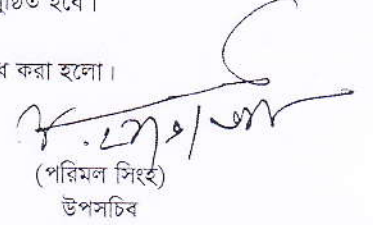 হবে।
করা হলো।
(পরিমল সিংহ)
উপসচিব